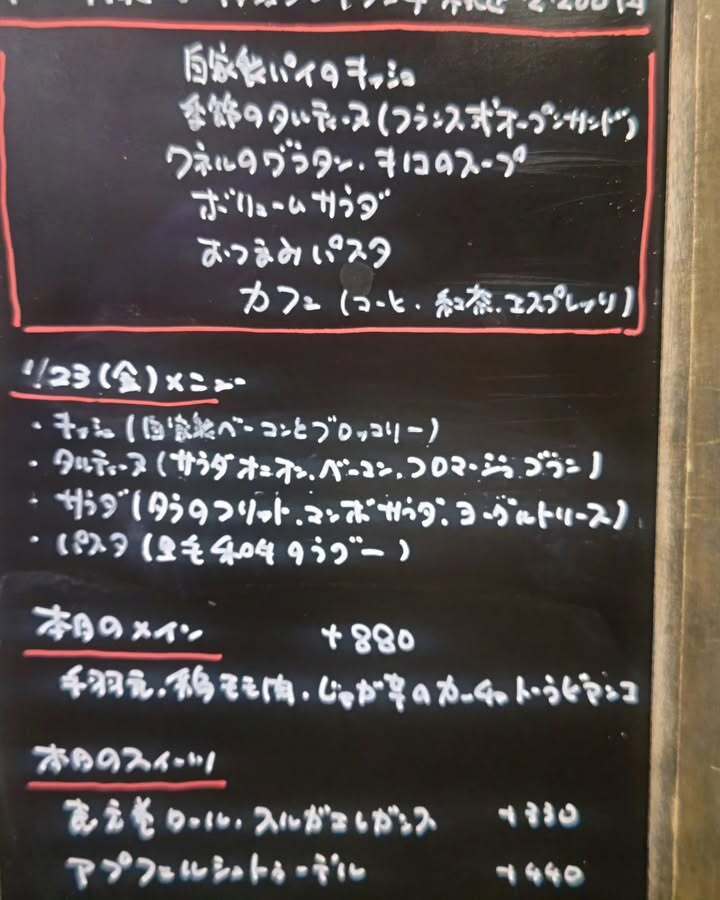 税込 2,200円
自家製パイのキッシュ
季節のタルティーヌ(フランス式オープンサンド)
クネルのグラタン・キノコのスープ
ボリュームサラダ
おつまみパスタ
カフェ(コーヒー・紅茶・エスプレッソ)
1/23(金)メニュー
・キッシュ(自家製ベーコンとブロッコリー)
・タルティーヌ(サラダオニオン、ベーコン、フロマージュブラン)
・サラダ(タラのフリット、コンボサラダ、ヨーグルトソース)
・パスタ(黒毛和牛のラグー)
本日のメイン +880
手羽元・鶏モモ肉・じゃが芋のカチャトーラビアンコ
本日のスイーツ
ロール・スルガエレガンス +330
アプフェルシュトゥルーデル +440